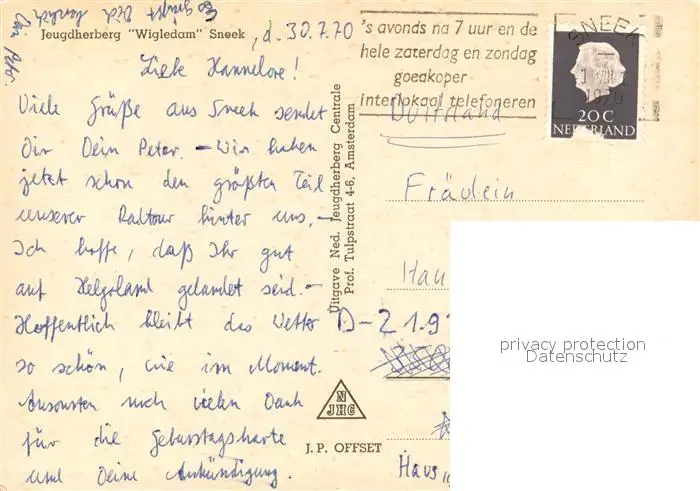 Es grüßt Dich herzlich
Dein Peter.
Jeugdherberg "Wigledam" Sneek
, d. 30.7.70
Liebe Hannelore!
Viele Grüße aus Sneek sendet
Dir Dein Peter. – Wir haben
jetzt schon den größten Teil
unserer Radtour hinter uns. –
Ich hoffe, daß Ihr gut
auf Helgoland gelandet seid. –
Hoffentlich bleibt das Wetter
so schön, wie im Moment.
Ansonsten noch vielen Dank
für die Geburtstagskarte
und Deine Ankündigung.
Uitgave Ned. Jeugdherberg Centrale
Prof. Tulpstraat 4-6, Amsterdam
N
JHC
J.P. OFFSET
's avonds na 7 uur en de
hele zaterdag en zondag
goedkoper
interlokaal telefoneren
SNEEK
1 VIII
1970
20 C
NEDERLAND
Duitsland
Fräulein
Hau
D-21.9
Haus
privacy protection
Datenschutz